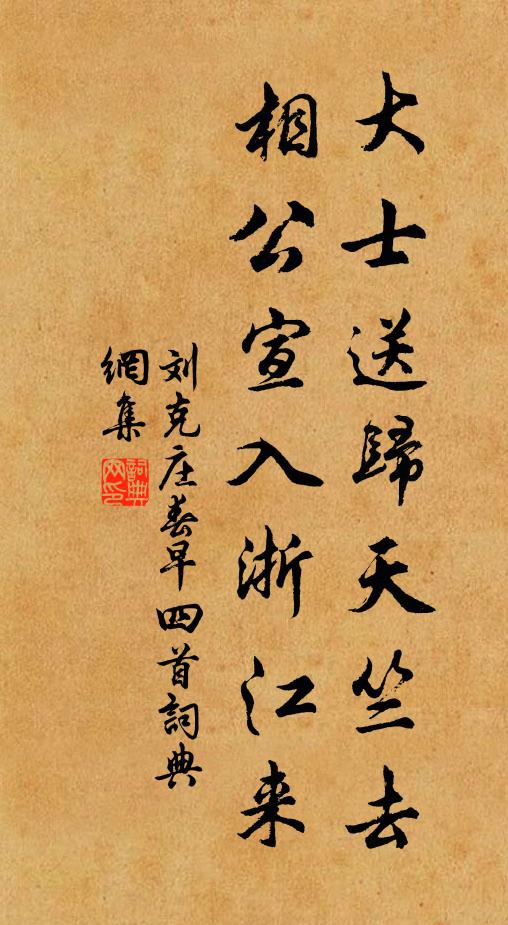 大士送歸天竺去
相公宣入浙江来
刘克庄春早四首詞典
網集
詞典网印